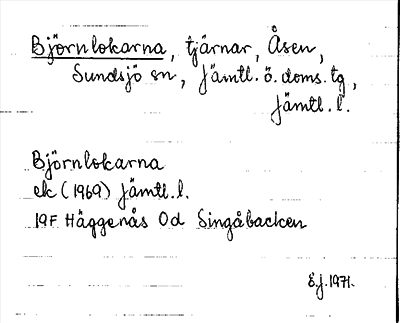 Björnlokarna, tjärnar, Åsen,
Sundsjö sn, Jämtl. ö. doms. tg,
Jämtl. l.
Björnlokarna
ek (1969) Jämtl. l.
19F Häggenås 0d Singåbacken
E.j. 1971.